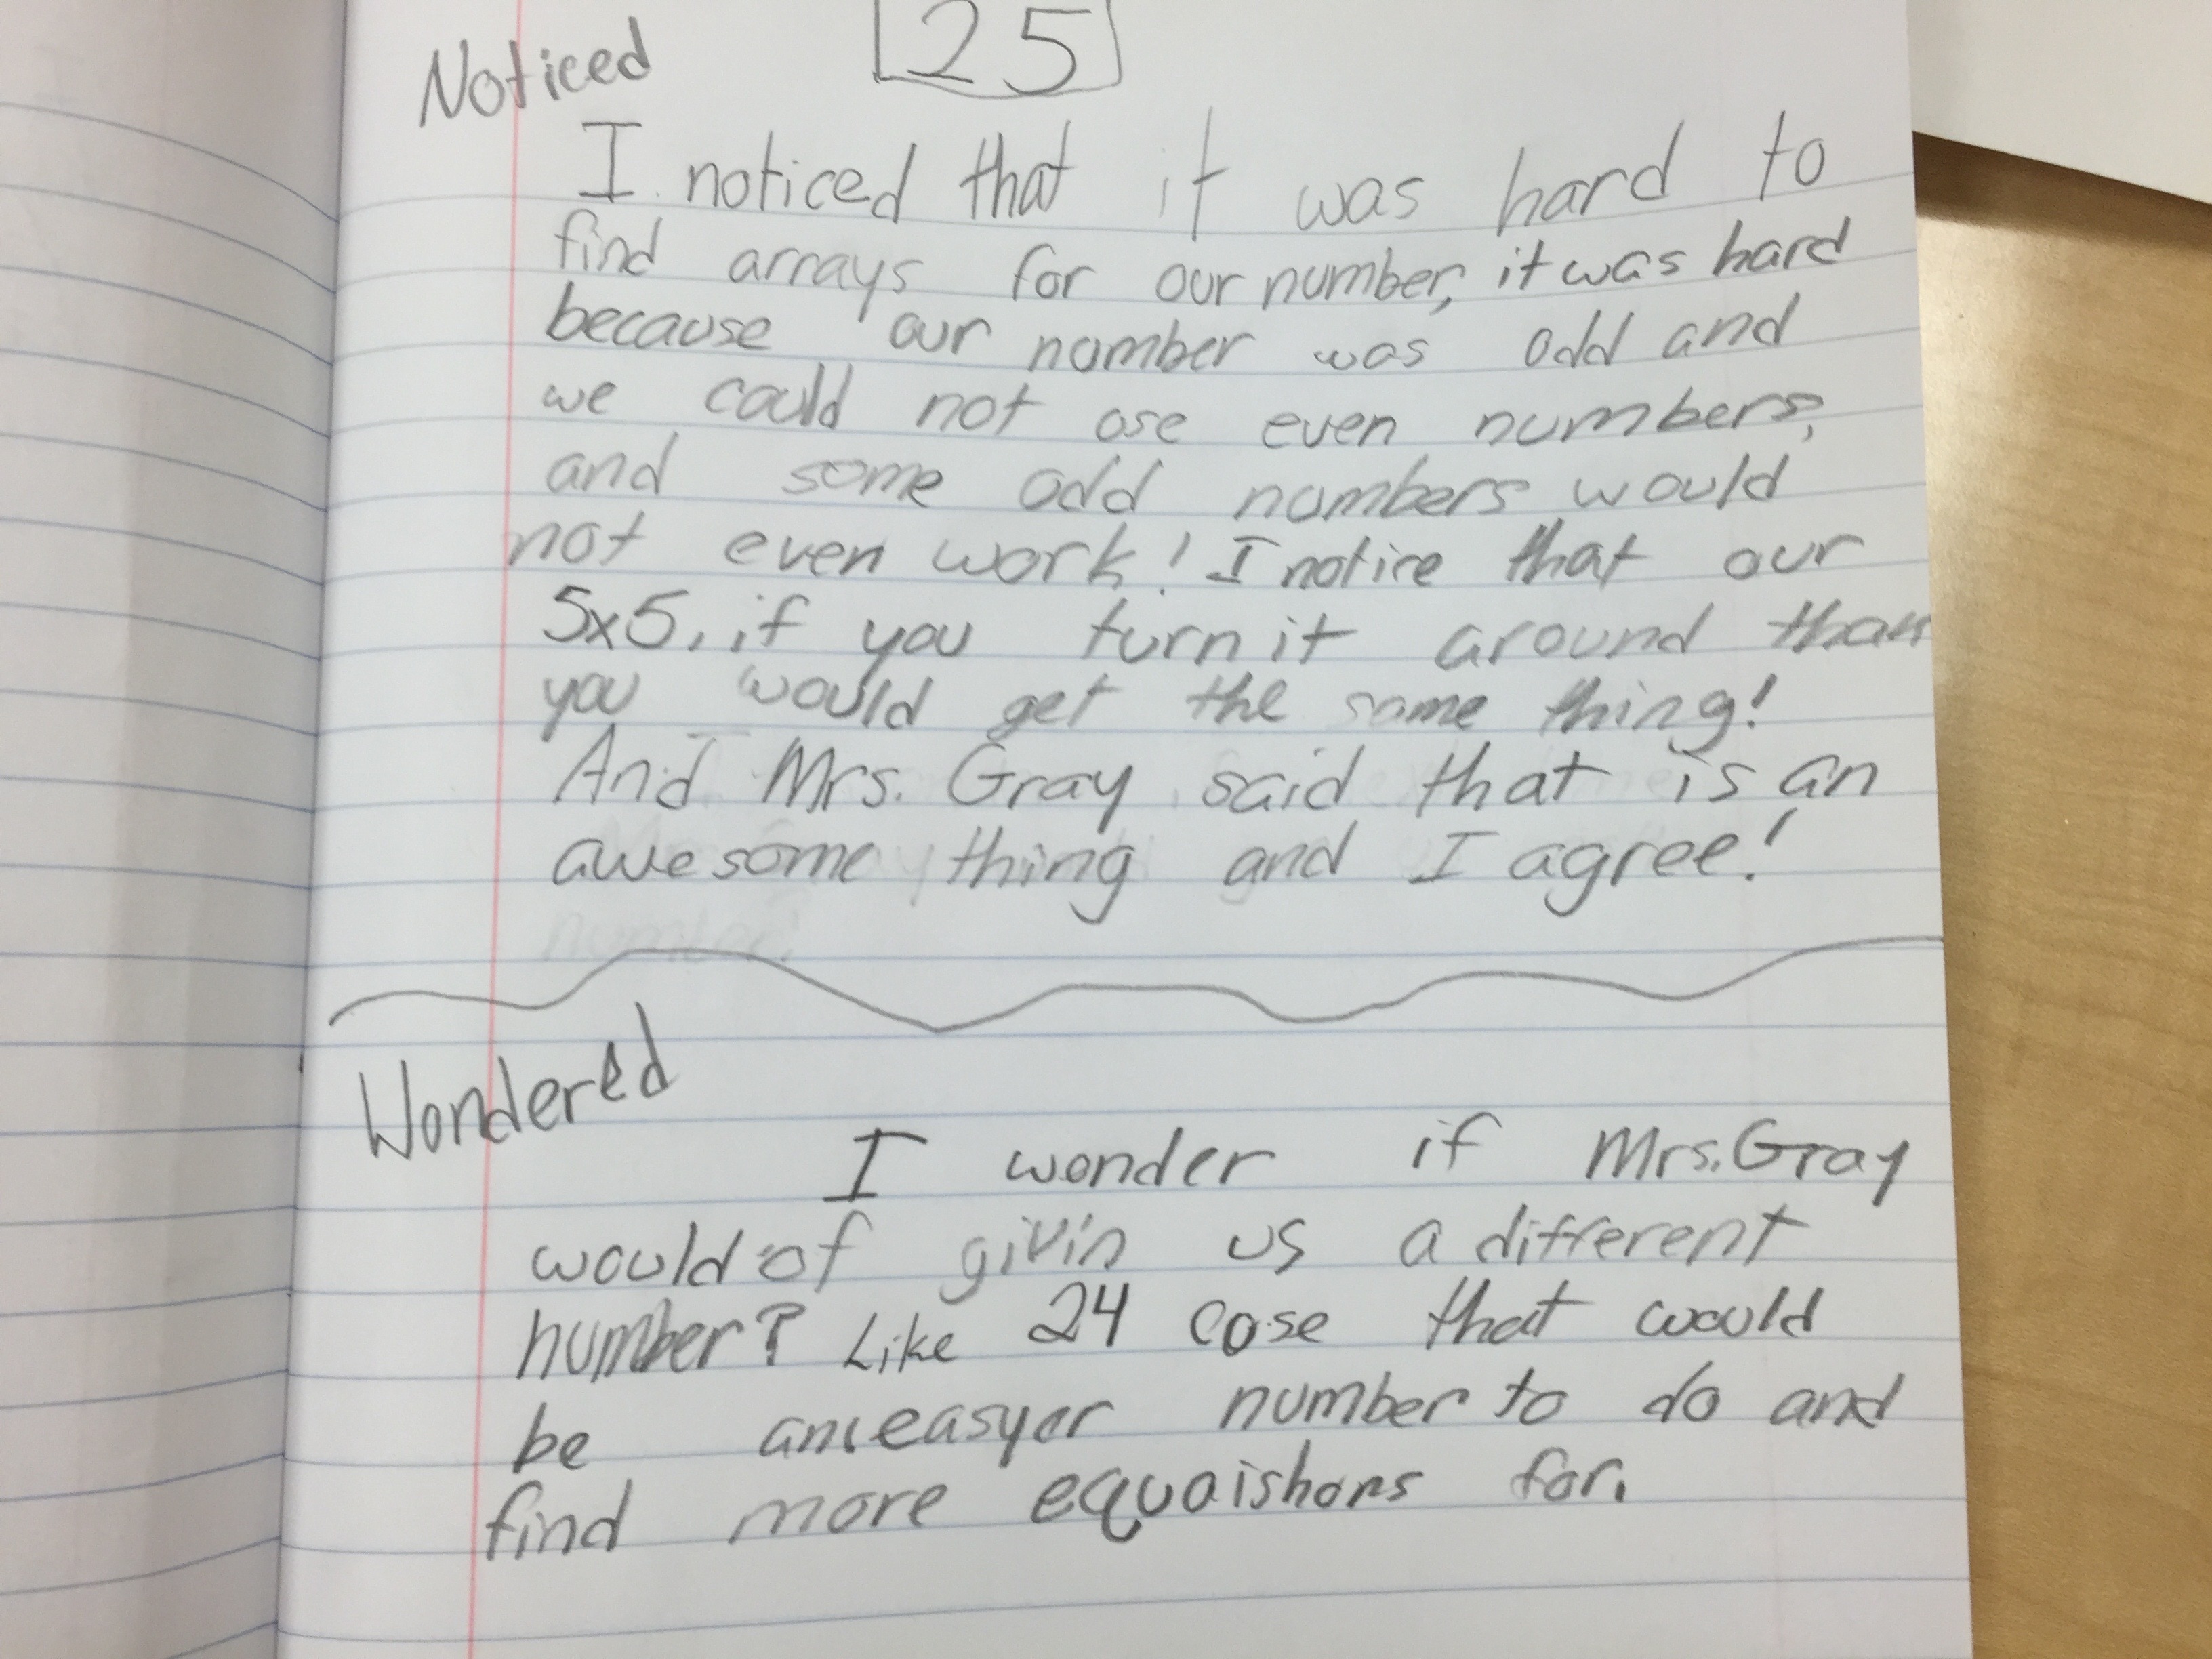 25
Noticed
I noticed that it was hard to
find arrays for our number, it was hard
because our number was odd and
we could not use even numbers,
and some odd numbers would
not even work! I notice that our
5x5, if you turn it around than
you would get the same thing!
And Mrs. Gray said that is an
awesome thing and I agree!
number
Wondered
I wonder if Mrs. Gray
would of givin us a different
number? Like 24 cose that would
be an easyer number to do and
find more equaishons for.